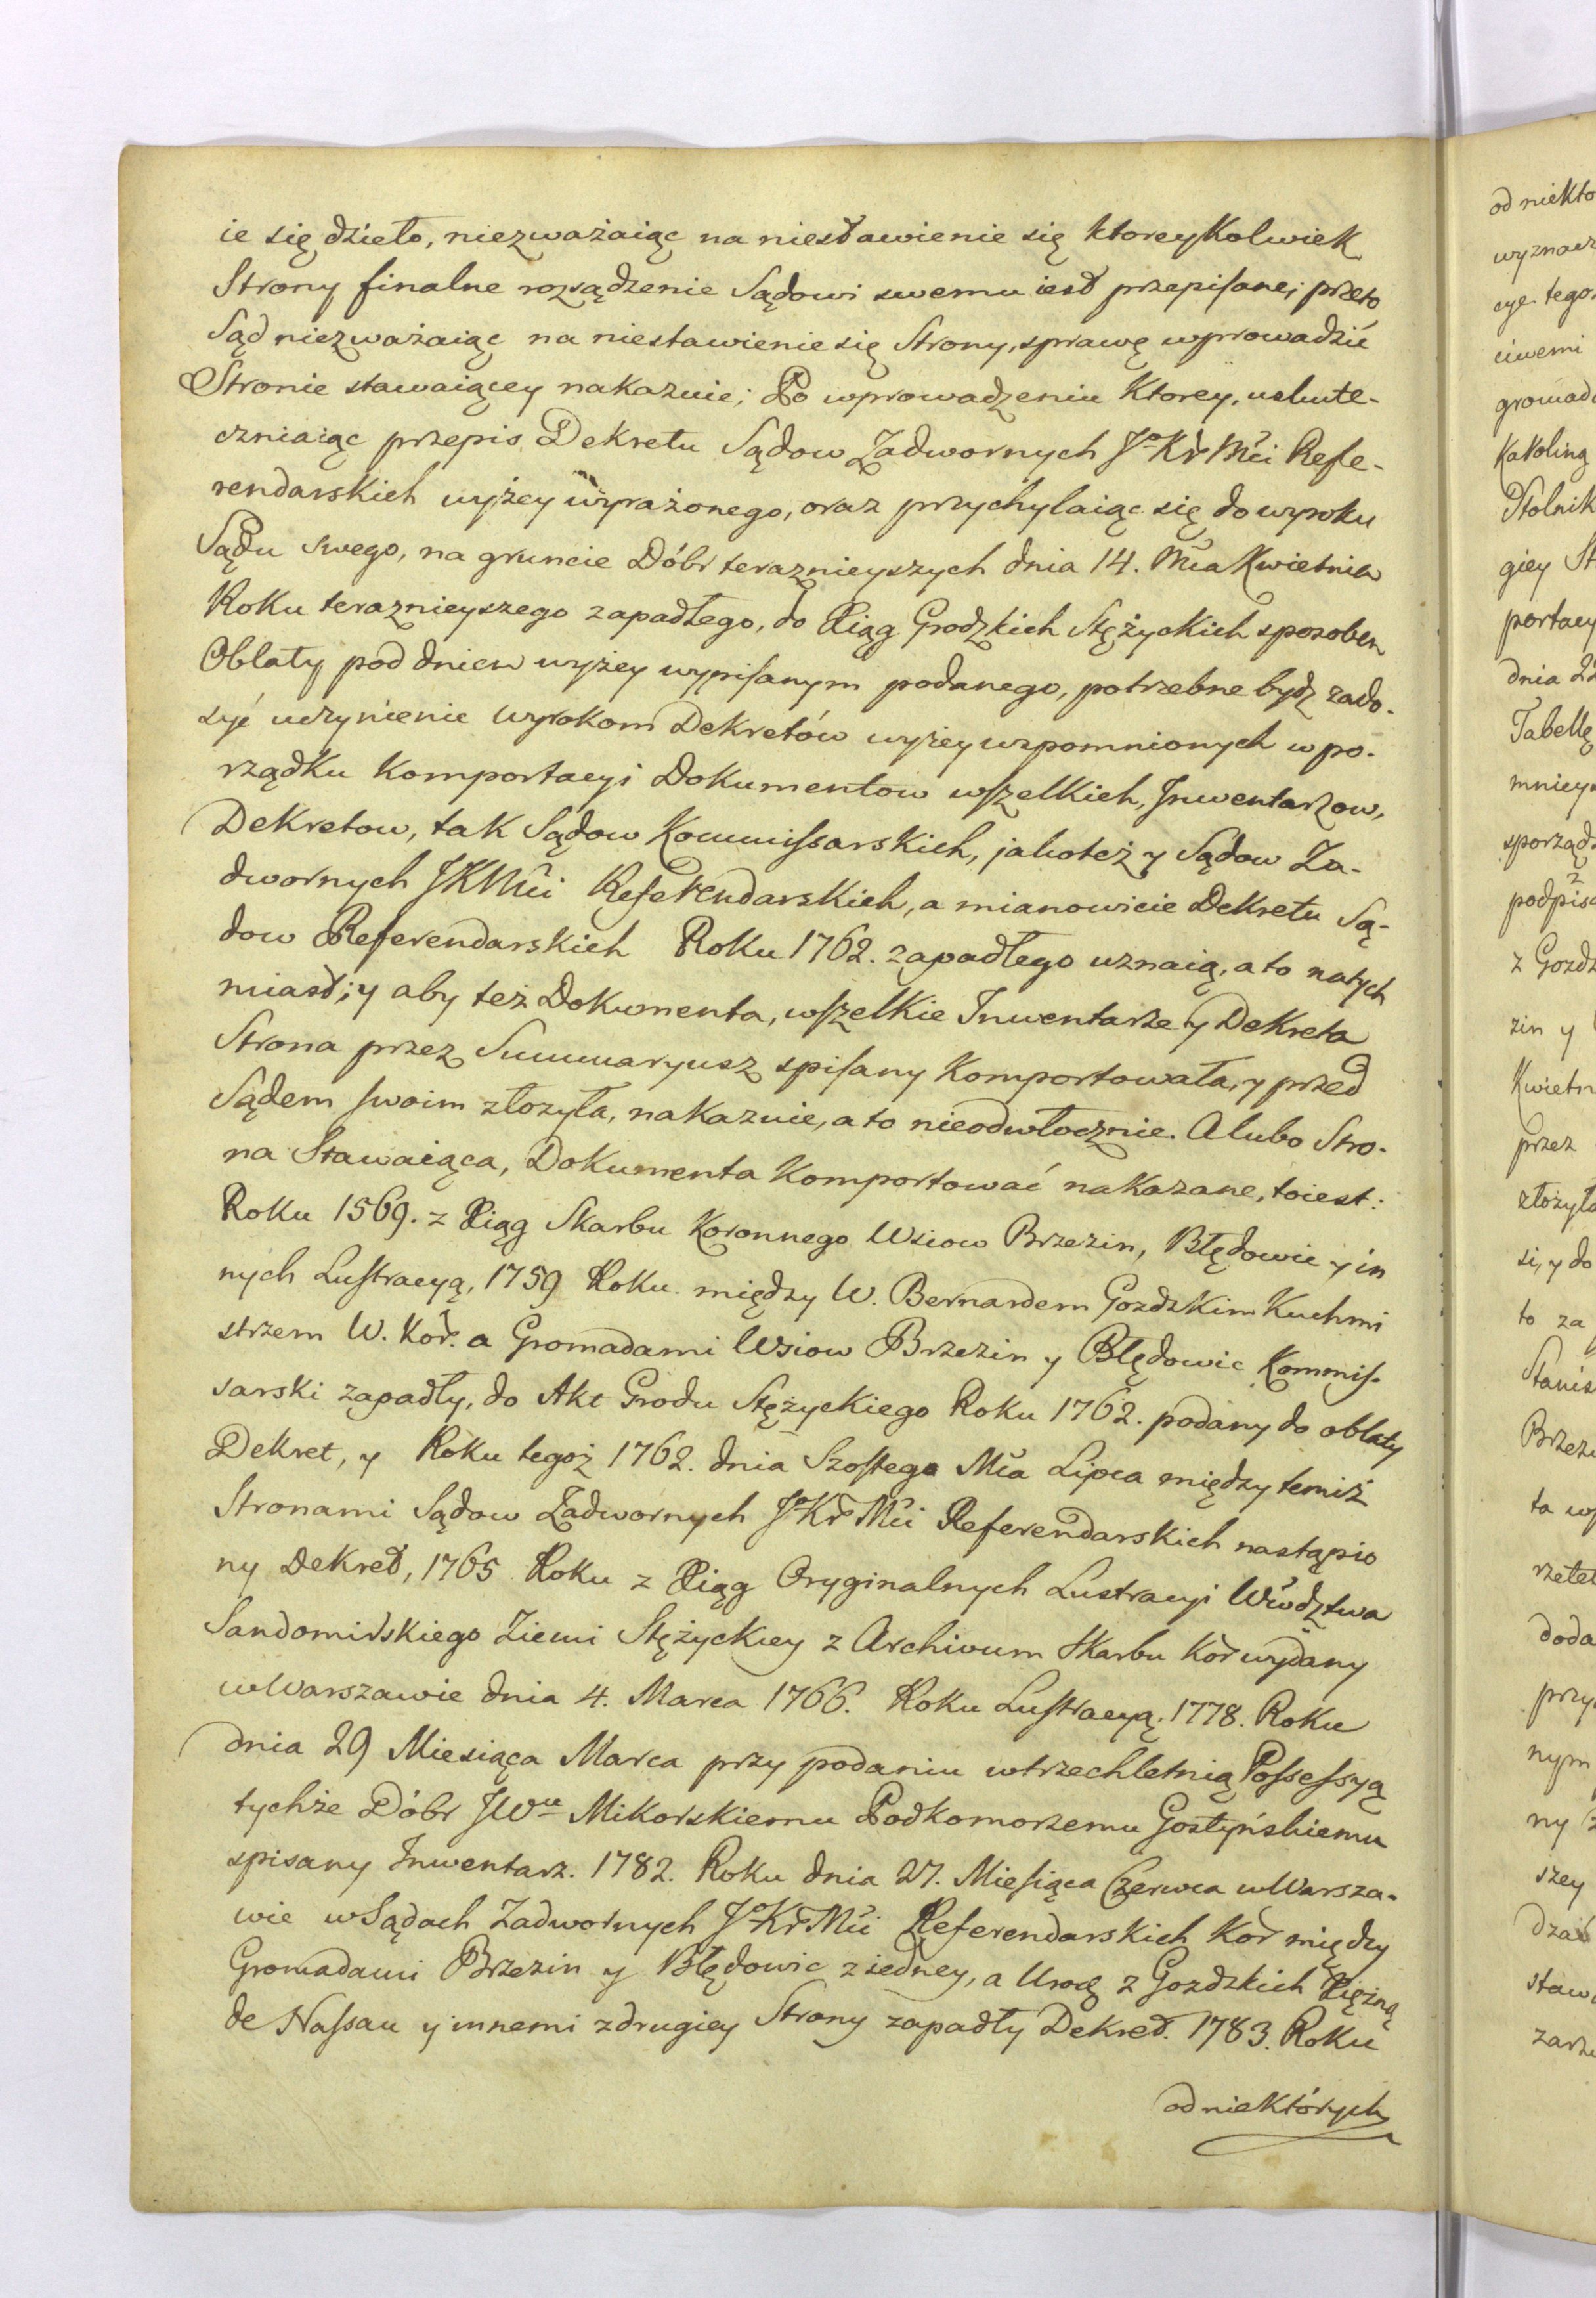 ie się dzieło, niezważaiąc na niestawienie się ktorey Kolwiek
Strony finalne rozsądzenie Sądowi swemu iest przepisane; przeto
Sąd niezważaiąc na niestawienie się Strony, sprawę wprowadzić
Stronie stawaiącey nakazuie; Po wprowadzeniu Ktorey, uskute-
czniaiąc przepis Dekretu Sądow Zadwornych JoKrMci Refe-
rendarskich wyżey wyrażonego, oraz przychylaiąc się do wyroku
Sądu swego, na gruncie Dóbr teraznieyszych dnia 14. Mca Kwietnia
Roku teraznieyszego zapadłego, do Xiąg Grodzkich Stężyckich sposobem
Oblaty pod dniem wyżey wypisanym podanego, potrzebne bydz zado-
syć uczynienie wyrokom Dekretów wyżey wspomnionych w po-
rządku Komportacyi Dokumentow wszelkich, Inwentarzow,
Dekretow, tak Sądow Kommissarskich, jakoteż y Sądow Za-
dwornych JKMci Referendarskich, a mianowicie Dekretu Są-
dow Referendarskich Roku 1762. zapadłego uznaią, a to natych
miast; y aby też Dokumenta, wszelkie Inwentarze y Dekreta
Strona przez Summaryusz spisany Komportowała, y przed
Sądem swoim złozyła, nakazuie, a to nieodwłocznie. A lubo Stro-
na Stawaiąca, Dokumenta Komportować nakazane, toiest:
Roku 1569. z Xiąg Skarbu Koronnego Wsiow Brzezin, Błędowic y in
nych Lustracyą, 1759 Roku. między W. Bernardem Gozdzkim Kuchmi
strzem W. Kor. a Gromadami Wsiow Brzezin y Błędowic Kommis-
sarski zapadły, do Akt Grodu Stężyckiego Roku 1762. podany do oblaty
Dekret, y Roku tegoż 1762. dnia Szostego Mca Lipca między temiż
Stronami Sądow Zadwornych JoKrMci Referendarskich nastąpio
ny Dekret, 1765 Roku z Xiąg Oryginalnych Lustracyi Wwdztwa
Sandomirskiego Ziemi Stężyckiey z Archivum Skarbu Kor wydany
w Warszawie dnia 4. Marca 1766. Roku Lustracyą. 1778. Roku
dnia 29 Miesiąca Marca przy podaniu w trzechletnią Possessyą
tychże Dóbr JWu Mikorskiemu Podkomorzemu Gostyńskiemu
spisany Inwentarz. 1782. Roku dnia 27. Miesiąca Czerwca w Warsza-
wie w Sądach Zadwornych JoKrMci Referendarskich Kor między
Gromadami Brzezin y Błędowic z iedney, a Urod z Gozdzkich Xiężną
de Nassau y innemi z drugiey Strony zapadły Dekret. 1783. Roku
od niektórych
od niekto
cye tego
ciwemi
gromad
Stolnik
giey St
portacy
dnia 22
Tabellę
sporząd
z Gozdz
zin y
Kwietn
przez
złożyła
si, y do
to za
Stanis
Brzezi
ta w
doda
przy
nym
szey
dzać
staw